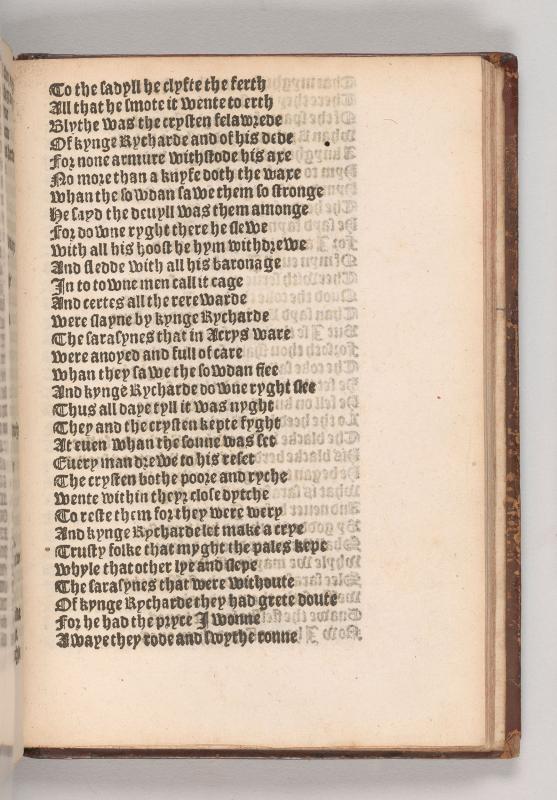 To the sadyll he clyfte the ferth
All that he smote it wente to erth
Blythe was the crysten felawrede
Of kynge Rycharde and of his dede
For none armure withstode his axe
No more than a knyfe doth the waxe
whan the sowdan sawe them so stronge
He sayd the deuyll was them amonge
For downe ryght there he slewe
with all his hoost he hym withdrewe
And fledde with all his baronage
In to towne men call it cage
And certes all the rerewarde
were slayne by kynge Rycharde
The sarasynes that in Acrys ware
were anoyed and full of care
whan they sawe the sowdan flee
And kynge Rycharde downe ryght slee
Thus all daye tyll it was nyght
They and the crysten kepte fyght
At euen whan the sonne was set
Euery man drewe to his reset
The crysten bothe poore and ryche
wente within theyr close dytche
To reste them for they were wery
And kynge Rycharde let make a crye
Trusty folke that myght the pales kepe
whyle that other lye and slepe
The sarasynes that were withoute
Of kynge Rycharde they had grete doute
For he had the pryce I wonne
Awaye they rode and swythe ronne